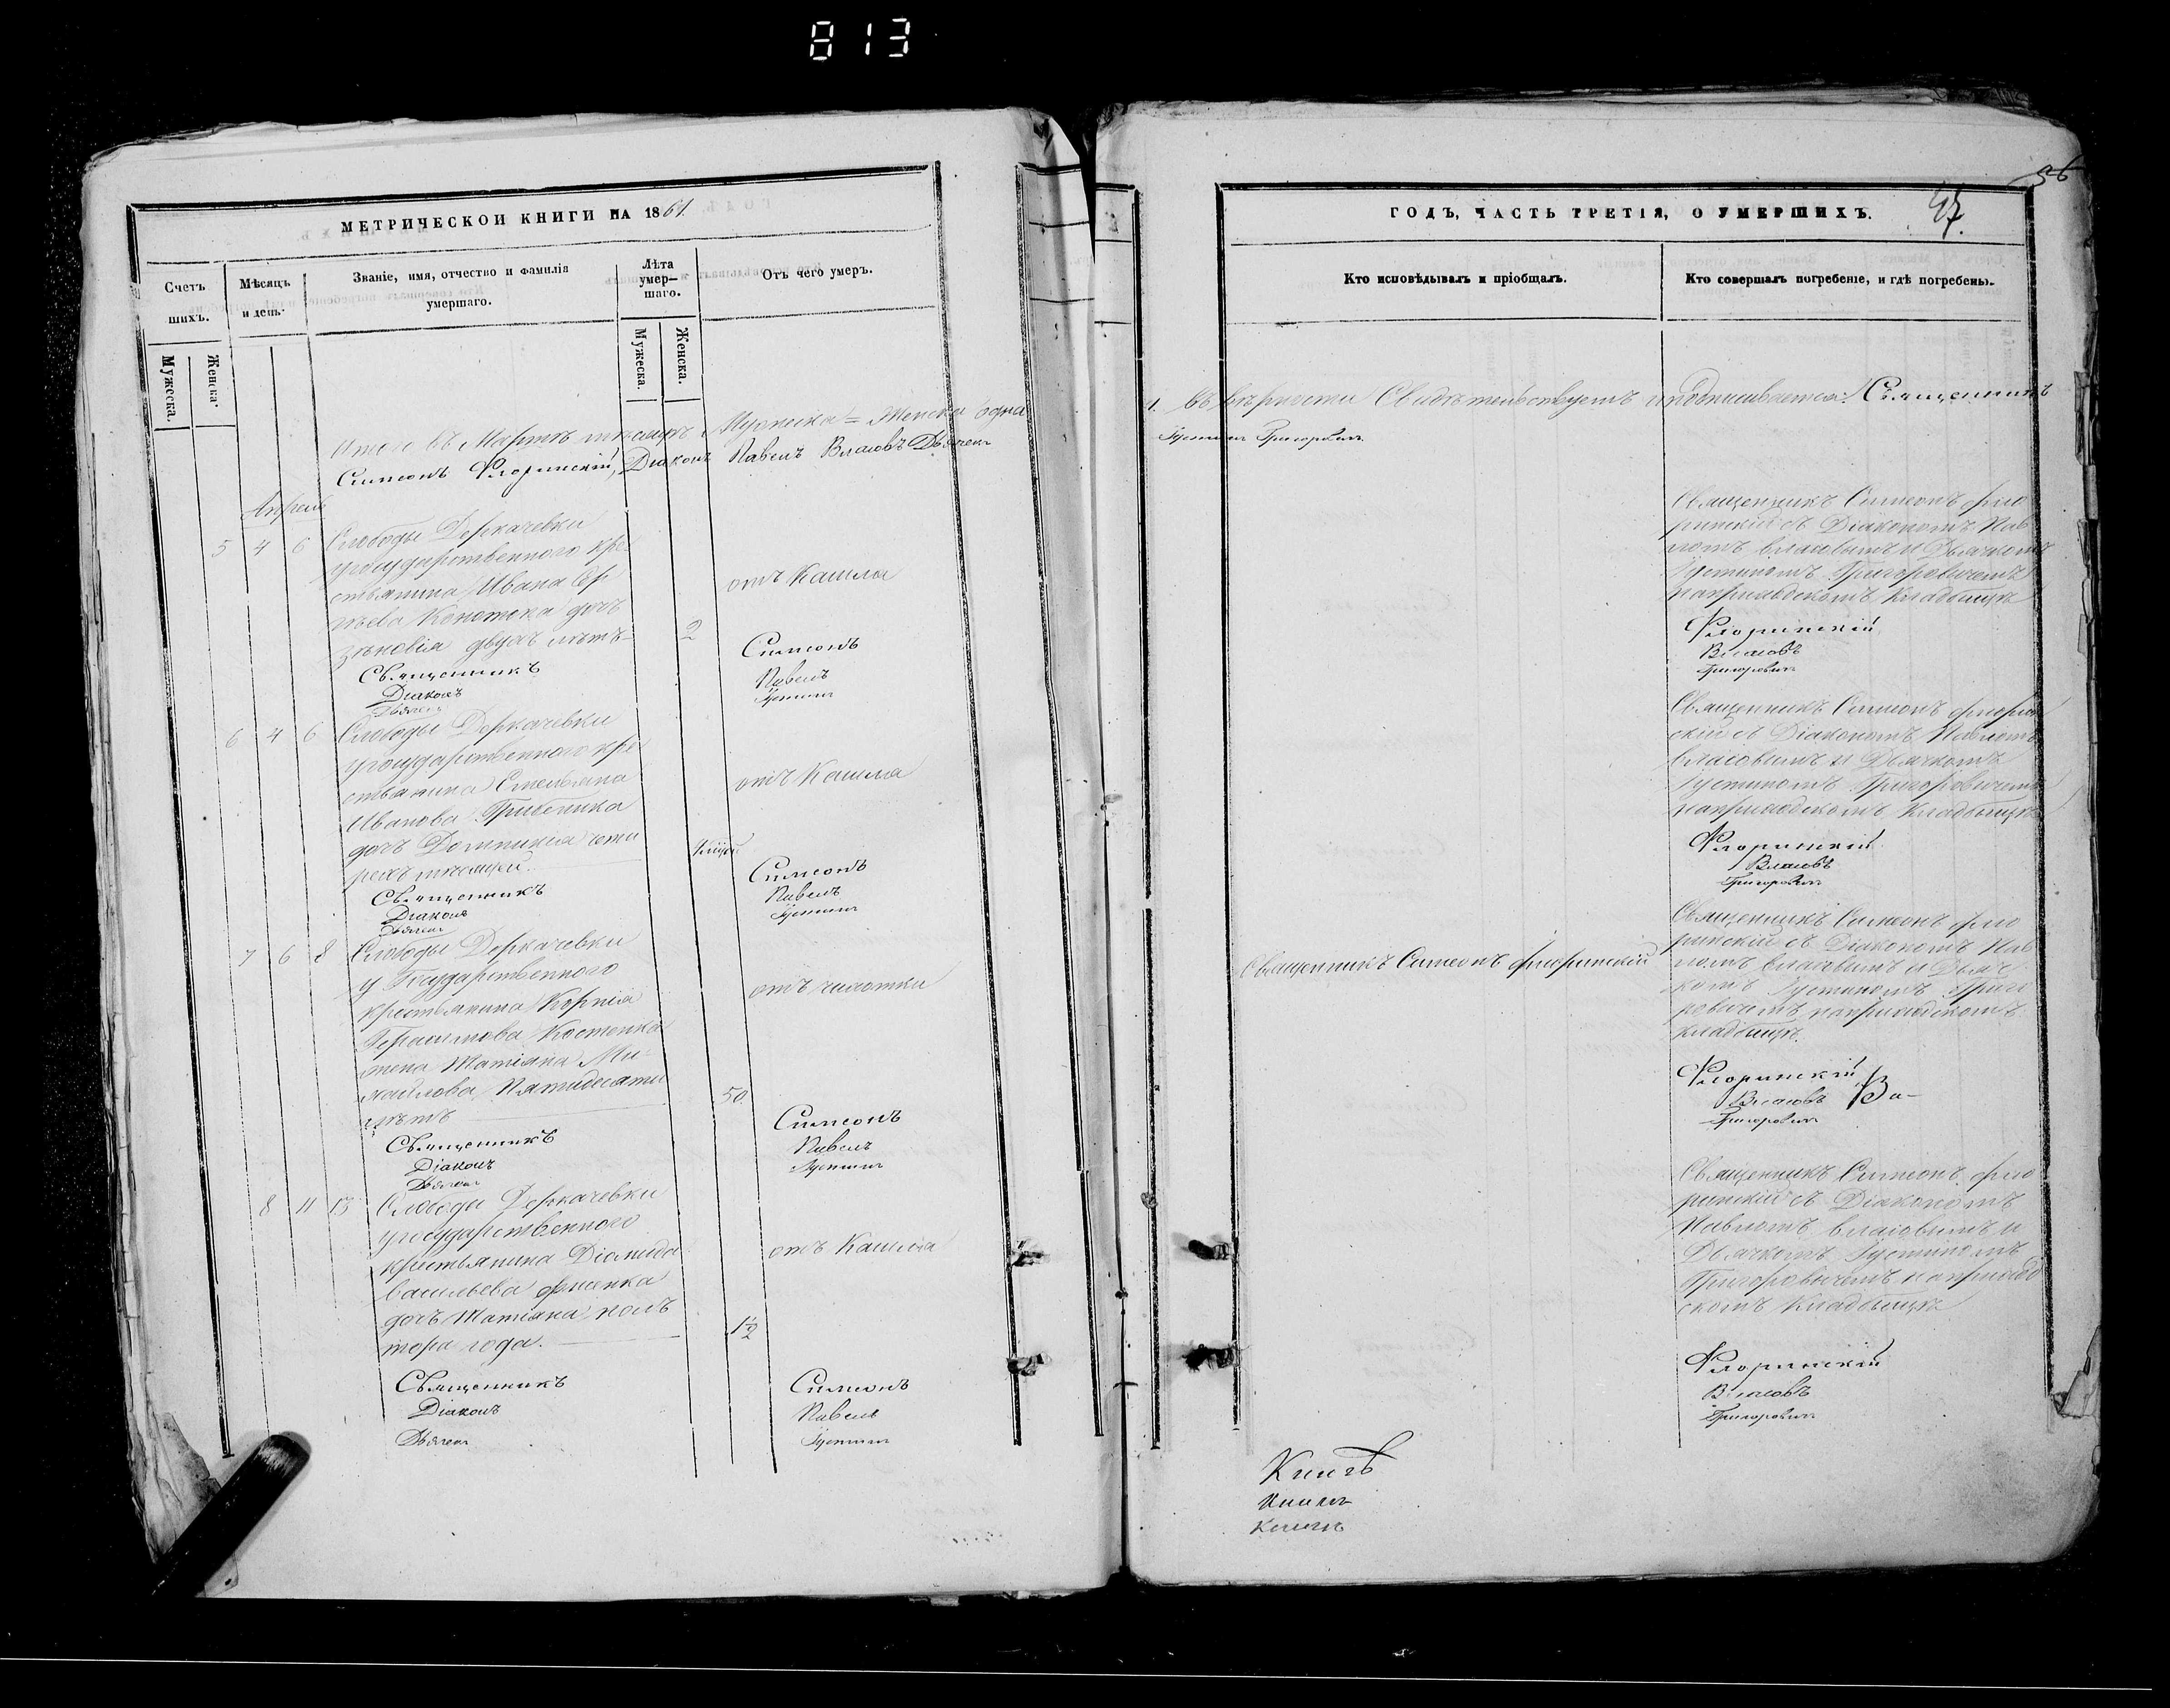 813
МЕТРИЧЕСКОЙ КНИГИ НА 1861.
Счетъ
шихъ.
Мѣсяцъ
и день.
Званіе, имя, отчество и фамилія
умершаго.
Лѣта
умер-
шаго.
Отъ чего умеръ.
Мужеска.
Женска.
Мужеска.
Женска.
Итого въ Мартѣ мѣсяцѣ Мужеска = Женска одна
Симеонъ Флоринскій, Діаконъ Павелъ Власовъ Дьячекъ
Апрель
5 4 6 Слободы Деркачевки
государственного кре
стьянина Ивана
Конотопа дочъ
двухъ лѣтъ
2
отъ Кашля
Священникъ Симеонъ
Діаконъ Павелъ
Дьячекъ Іустинъ
6 4 6 Слободы Деркачевки
государственного кре
стьянина Емельяна
Иванова
дочъ Домникія четы
рехъ мѣсяцей.
отъ Кашля
Священникъ Симеонъ
Діаконъ Павелъ
Дьячекъ Іустинъ
7 6 8 Слободы Деркачевки
у Государственного
крестьянина Корнія
Герасимова Костенка
жена Татіяна Ми
хайлова Пятидесяти
лѣтъ
50
отъ чахотки
Священникъ Симеонъ
Діаконъ Павелъ
Дьячекъ Іустинъ
8 11 13 Слободы Деркачевки
государственного
крестьянина Діомида
Васильева
дочъ Татіяна пол
тора года.
1 1/2
отъ Кашля
Священникъ Симеонъ
Діаконъ Павелъ
Дьячекъ Іустинъ
56
47.
ГОДЪ, ЧАСТЬ ТРЕТІЯ, О УМЕРШИХЪ.
Кто исповѣдывалъ и пріобщалъ.
Кто совершалъ погребеніе, и гдѣ погребены.
Въ вѣрности Свидѣтельствуетъ и подписывается: Священникъ
Іустинъ Григоровичъ
Священникъ Симеонъ Фло
ринскій съ Діакономъ Пав
ломъ Власовымъ и Дьячкомъ
Іустиномъ Григоровичемъ
на приходскомъ Кладбищѣ
Флоринскій
Власовъ
Григоровичъ
Священникъ Симеонъ Флорин
скій съ Діакономъ Павломъ
Власовымъ и Дьячкомъ
Іустиномъ Григоровичемъ
на приходскомъ Кладбищѣ
Флоринскій
Власовъ
Григоровичъ
Священникъ Симеонъ Флоринскій
Священникъ Симеонъ Фло
ринскій съ Діакономъ Пав
ломъ Власовымъ и Дьяч
комъ Іустиномъ Григо
ровичемъ на приходскомъ
кладбищѣ
Флоринскій
Власовъ
Григоровичъ
Священникъ Симеонъ Фло
ринскій съ Діакономъ
Павломъ Власовымъ и
Дьячкомъ Іустиномъ
Григоровичемъ на приход
скомъ Кладбищѣ
Флоринскій
Власовъ
Григоровичъ